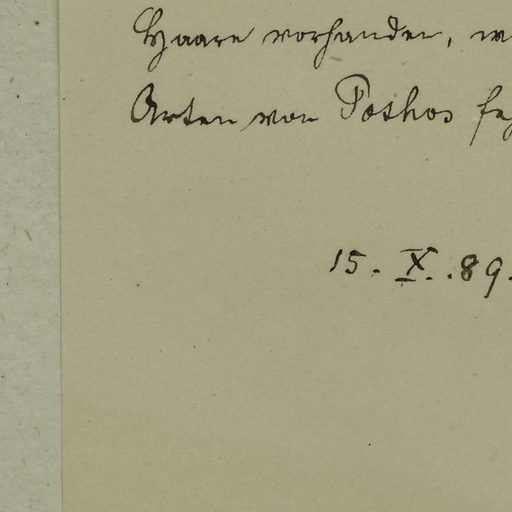 Haare vorhanden,
Arten von Pothos
15. X. 89.